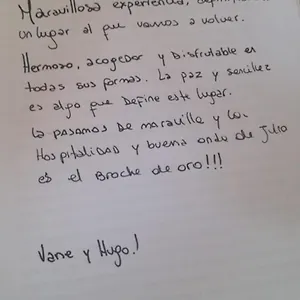 Maravillosa experiencia,
un lugar al que vamos a volver.
Hermoso, acogedor y Disfrutable en
todas sus formas. La paz y sencillez
es algo que Define este lugar.
La pasamos De maravilla y la
Hospitalidad y buena onda de Julio
es el Broche de oro!!!
Vane y Hugo!